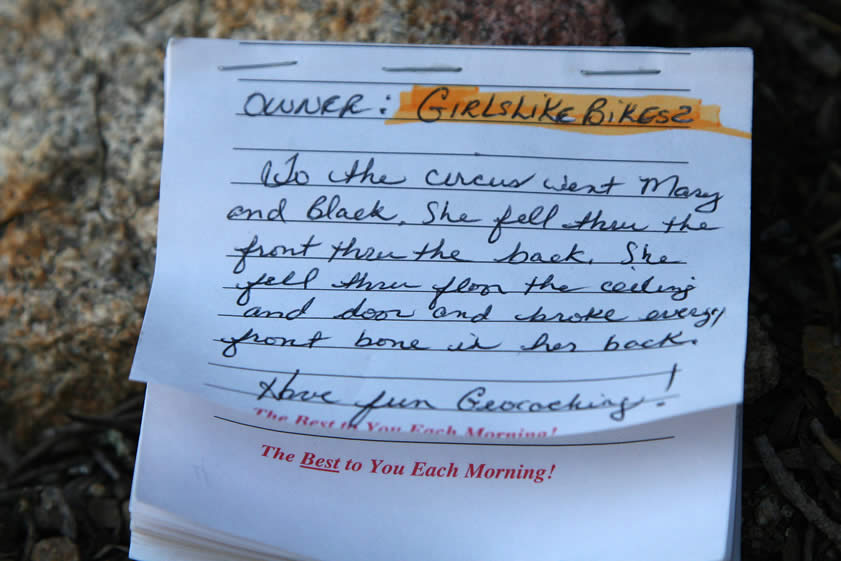 OWNER: GIRLSLIKEBIKES2
To the circus went Mary
and Black. She fell thru the
front thru the back. She
fell thru floor the ceiling
and door and broke every
front bone in her back.
Have fun Geocaching!
The Best to You Each Morning!
The Best to You Each Morning!